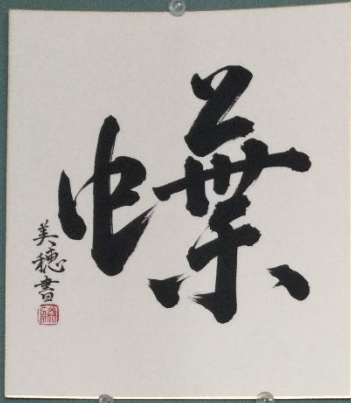 蝶
美穂書